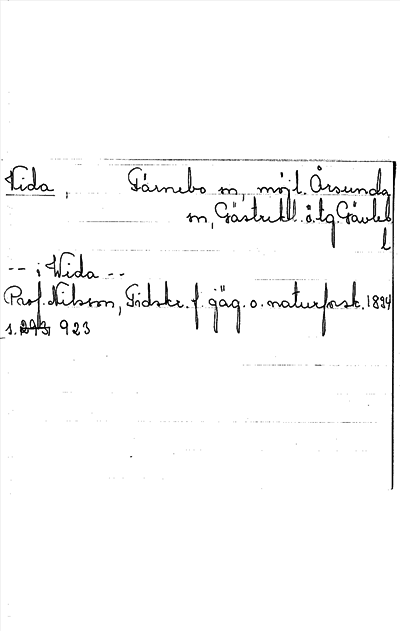 Vida, Färnebo sn, möjl. Årsunda
sn, Gästrikl. o. tg. Gävleb
l
-- i Wida --
Prof. Nilsson, Tidskr. f. jäg. o. naturforsk. 1834
s. 293 923